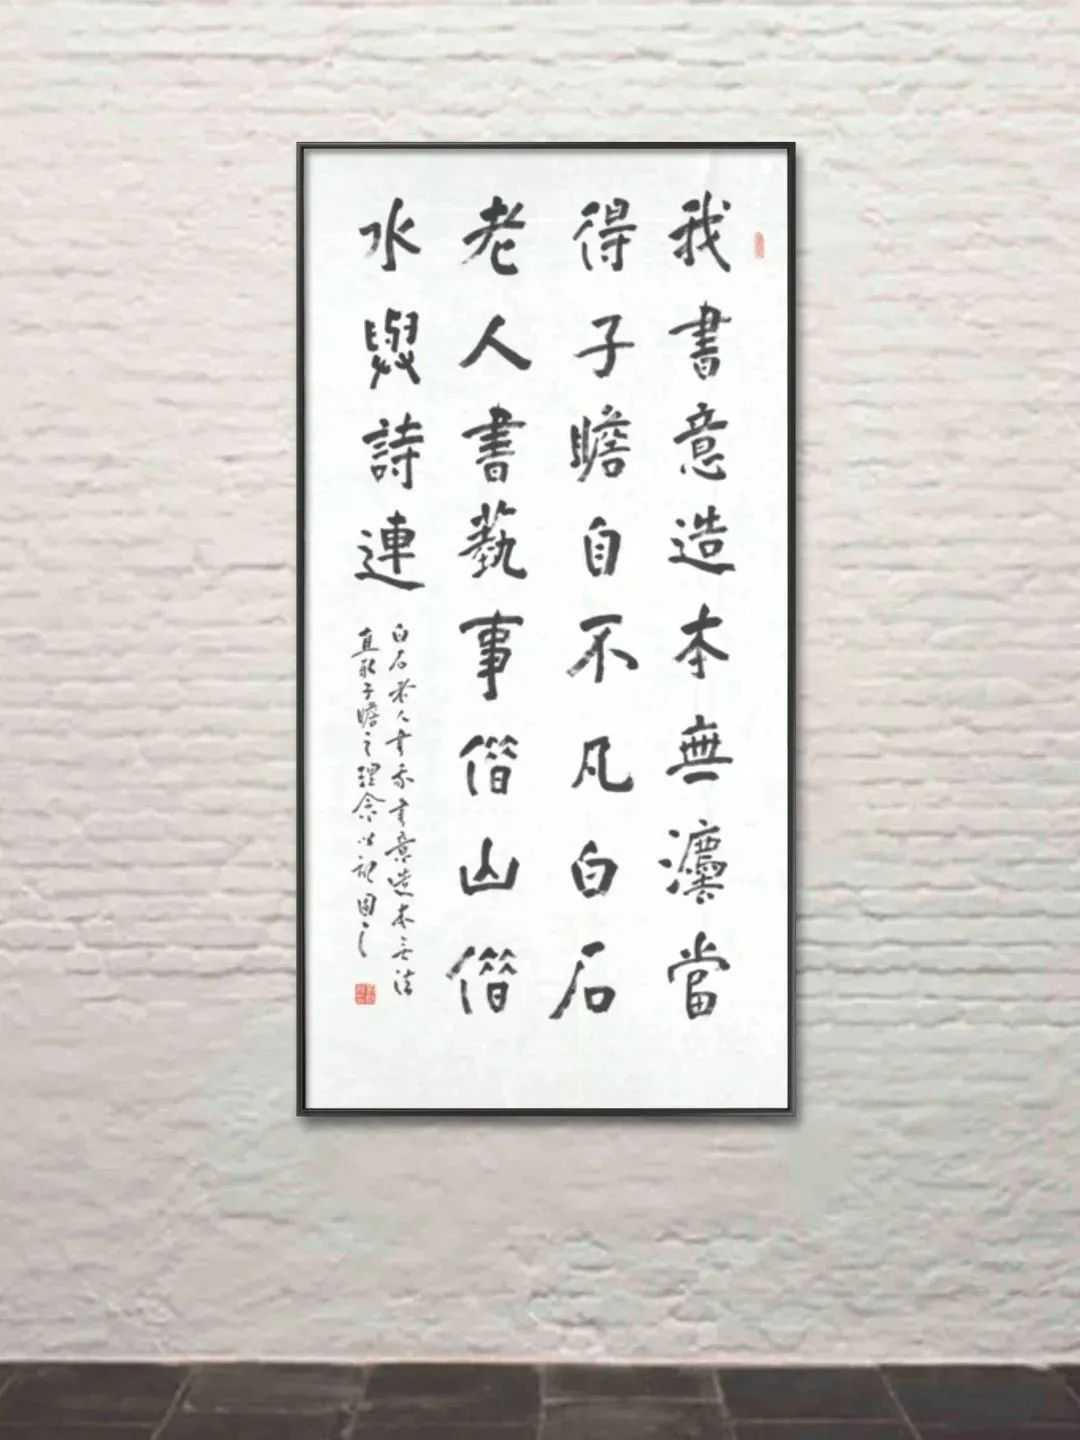 我書意造本無灋當
得子瞻自不凡白石
老人書藝事借山借
水與詩連
白石老人書我書意造本无法
直取子瞻之理念以記